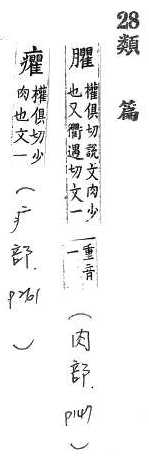 28 類篇
臞 權俱切說文肉少
也又衢遇切文一
重音
一
(肉部. p147)
癯 權俱切少
肉也文一
(疒部. p261)